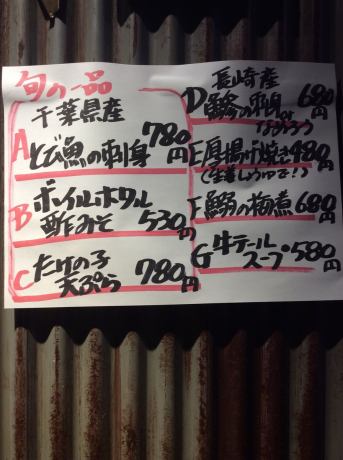 旬の一品
千葉県産
A とび魚の刺身 780円
B ボイルホタル
酢みそ 530円
C たけの子
天ぷら 780円
長崎産
D 鯵の刺身 or 680円
なめろう
E 厚揚げ焼き 480円
(生姜しょうゆで!)
F 鰯の梅煮 680円
G 牛テール
スープ 580円